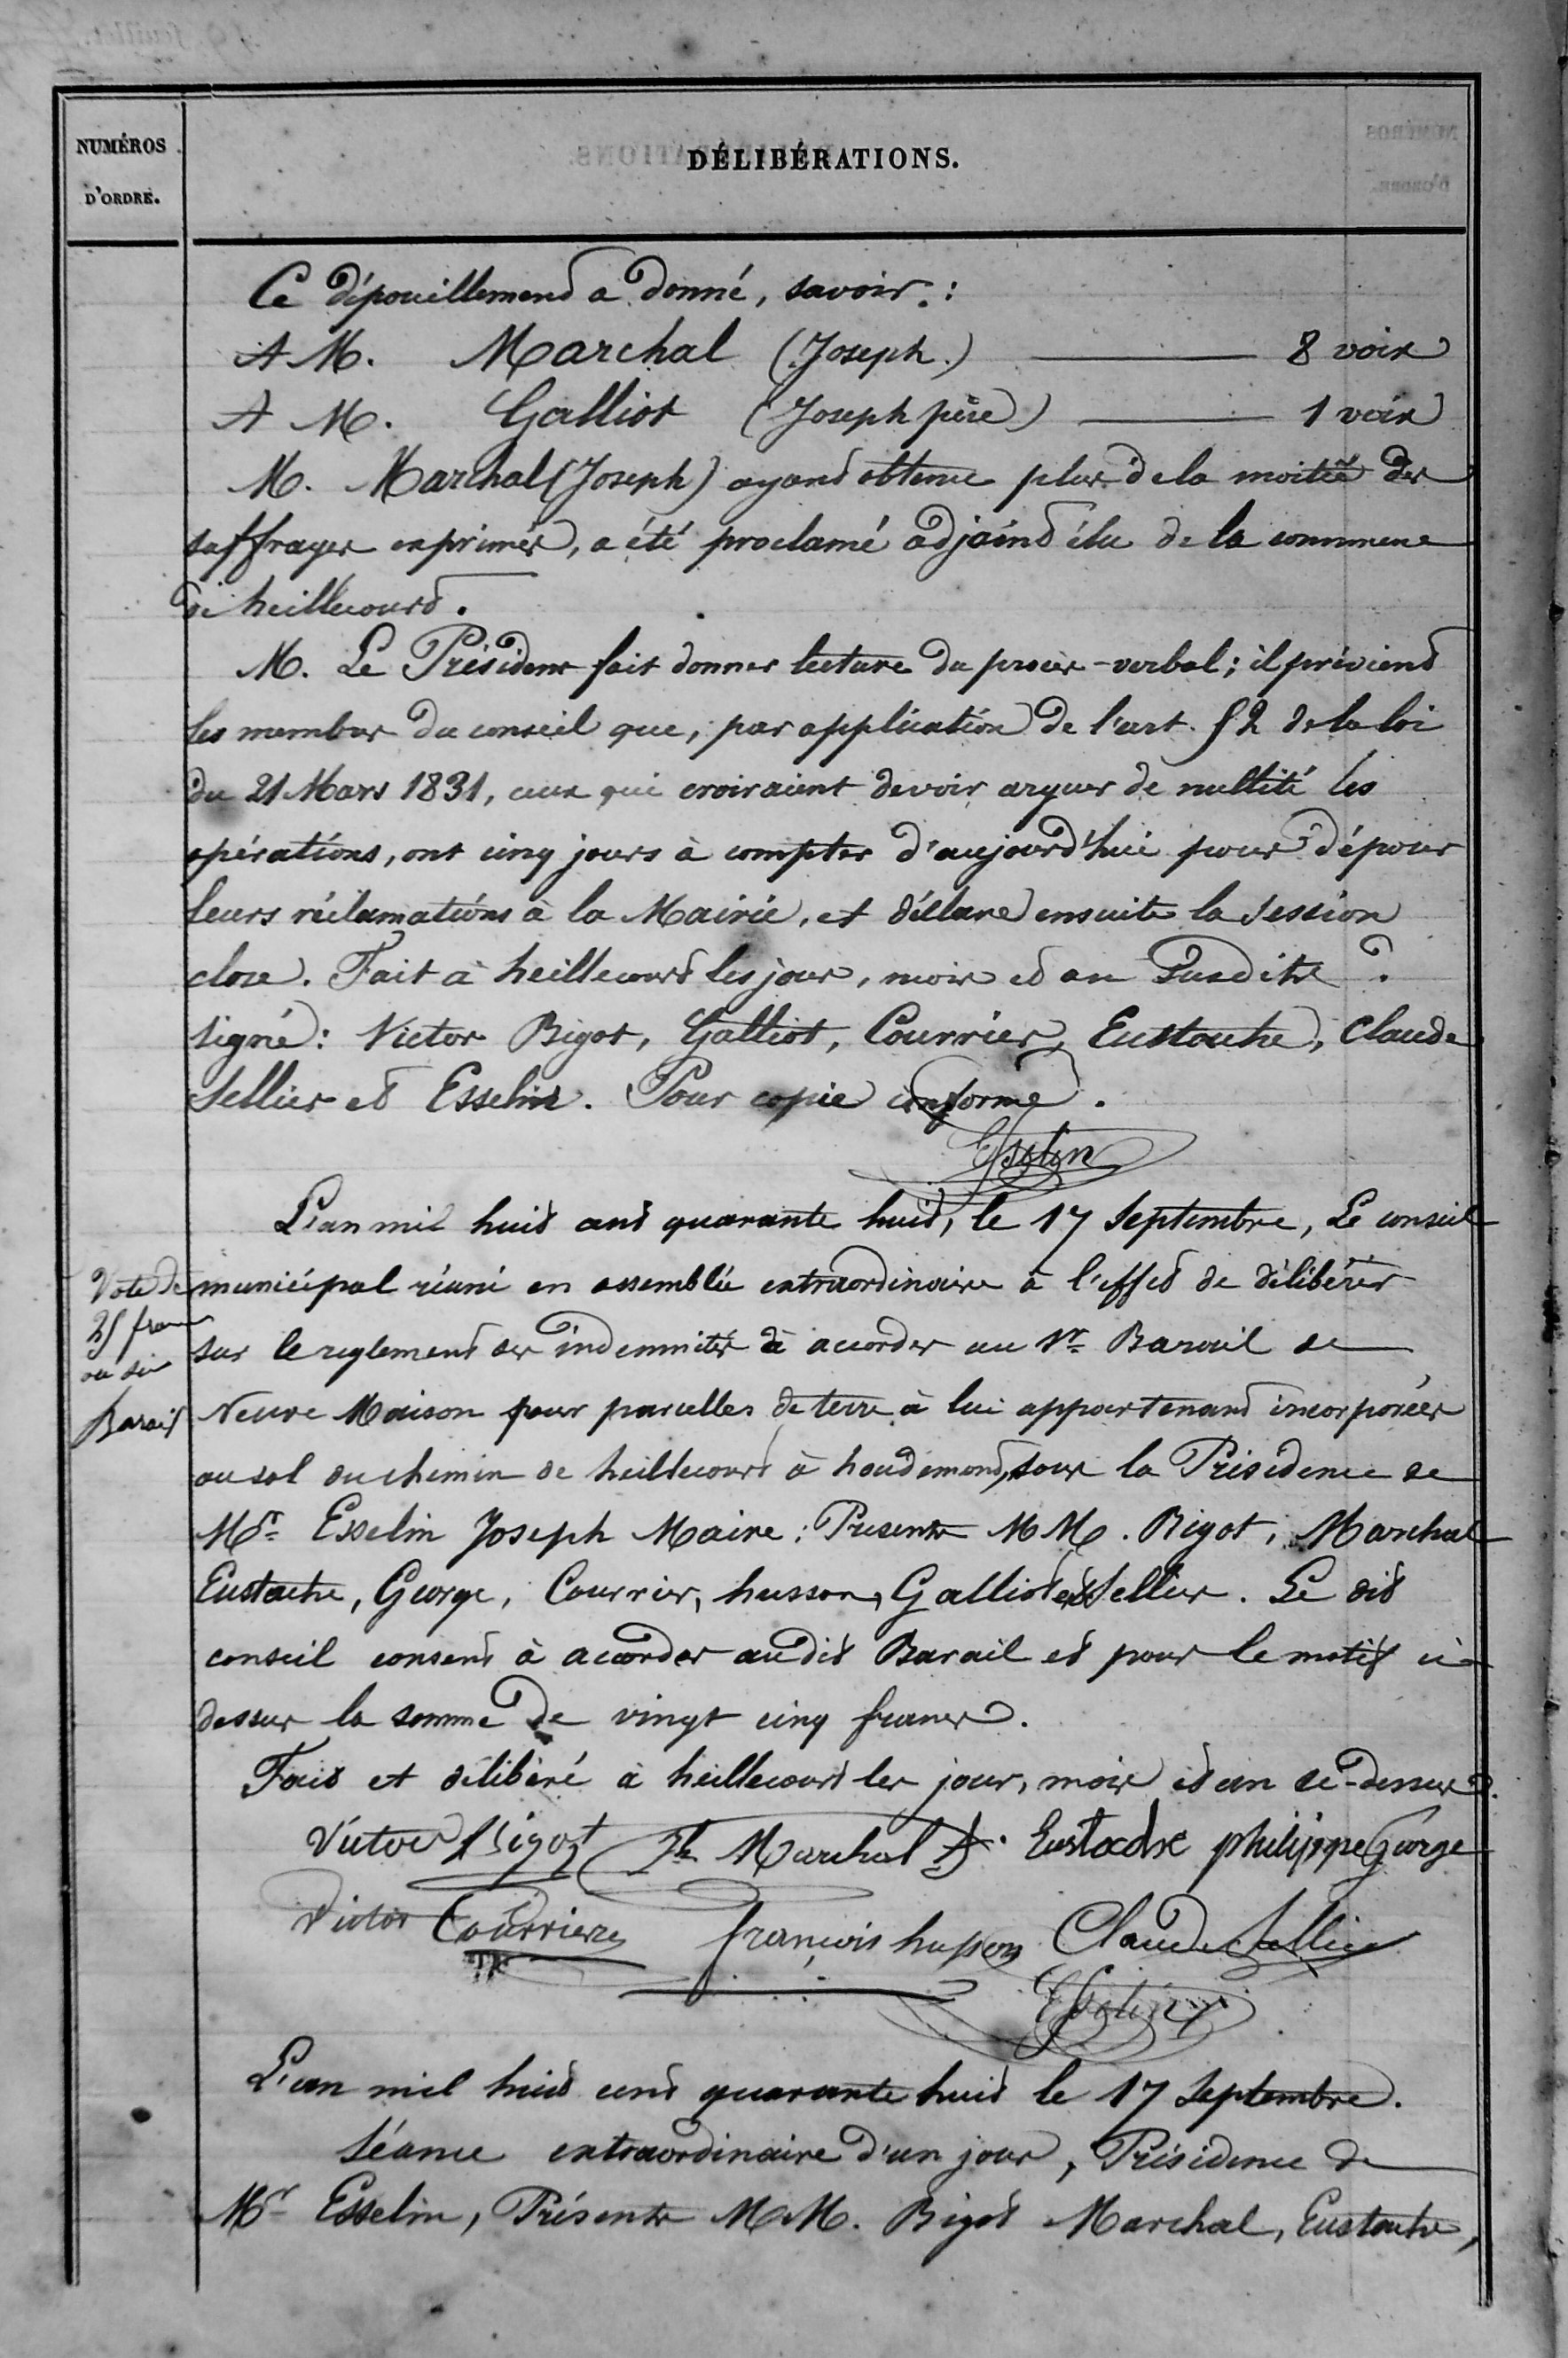 NUMÉROS
D'ORDRE.
DÉLIBÉRATIONS.
Ce dépouillement a donné, savoir :
A M. Marchal (Joseph.) 8 voix
A M. Galliot (Joseph père) 1 voix
M. Marchal (Joseph) ayant obtenu plus de la moitié des
suffrages exprimés, a été proclamé adjoint élu de la commune
de heillecourt.
M. Le Président fait donner lecture du procès-verbal ; il prévient
les membres du conseil que, par application de l'art. 52 de la loi
du 21 Mars 1831, ceux qui croiraient devoir arguer de nullité les
opérations, ont cinq jours à compter d'aujourd'hui pour déposer
leurs réclamations à la Mairie, et déclare ensuite la session
close. Fait à heillecourt les jour, mois et an Susdits.
signé : Victor Bigot, Galliot, Courrier, Eustache, Claude
Sellier et Esselin. Pour copie conforme.
Esselin
L'an mil huit cent quarante huit, le 17 Septembre, Le conseil
Vote de
25 francs
au sir
Barail
municipal réuni en assemblée extraordinaire à l'effet de délibérer
sur le reglement des indemnités à accorder au Sr. Barail de
Neuve Maison pour parcelles de terre à lui appartenant incorporées
au sol du chemin de heillecourt à houdemont, sous la Présidence de
Mr. Esselin Joseph Maire : Presents MM. Bigot, Marchal
Eustache, George, Courrier, husson, Galliot et Sellier. Le dit
conseil consent à accorder au dit Barail et pour le motif ci
dessus la somme de vingt cinq francs.
Fait et délibéré à heillecourt les jour, mois et an ce-dessus.
Victor Bigot Jh Marchal Eustache philippe George
Victor Courrier françois husson Claude Sellier
Esselin
L'an mil huit cent quarante huit le 17 Septembre.
Séance extraordinaire d'un jour, Présidence de
Mr Esselin, Présents MM. Bigot Marchal, Eustache,